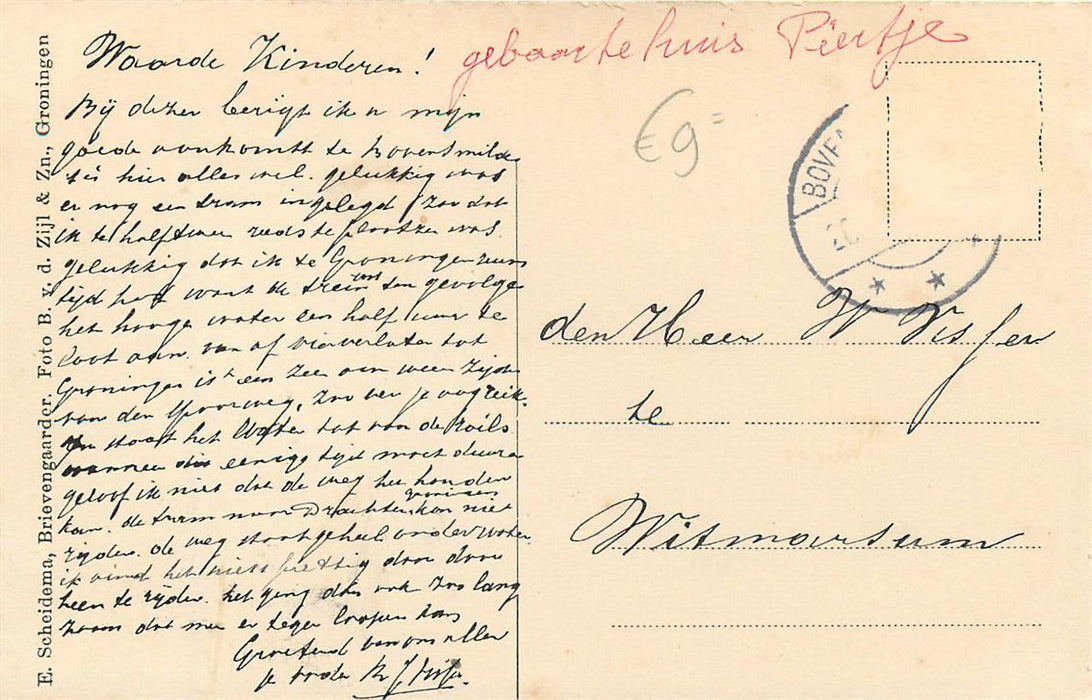 E. Scheidema, Brievengaarder. Foto B. v. d. Zijl & Zn., Groningen
Waarde Kinderen!
gebaarte huis Pieitje
€9=
Bij dezen berigt ik u mijn
goede aankomst te Bovensmilde
tis hier alles wel. gelukkig was
er nog een tram ingelegd zoo dat
ik te half twee reeds te plaatze was.
gelukkig dat ik te Groningen ruim
tijd had want de trein was ten gevolge
het hooge water een half uur te
laat aan. van af vierverlaten tot
Groningen is 't een Zee aan weer Zijde
van den Spoorweg, zoo ver je oog reik-
en staat het Water tot aan de Rails
wanneer dit eenige tijd moet duren
geloof ik niet dat de weg het houden
kan. de tram naar Drachten Groningen kan niet
rijden. de weg staat geheel onder water
ik vind het niets prettig daar door
heen te rijden. het ging dan ook zoo lang
zaam dat men er tegen loopen kan
Groetend van ons allen
je vader
BOVE
den Heer W Visser
te
Witmarsum